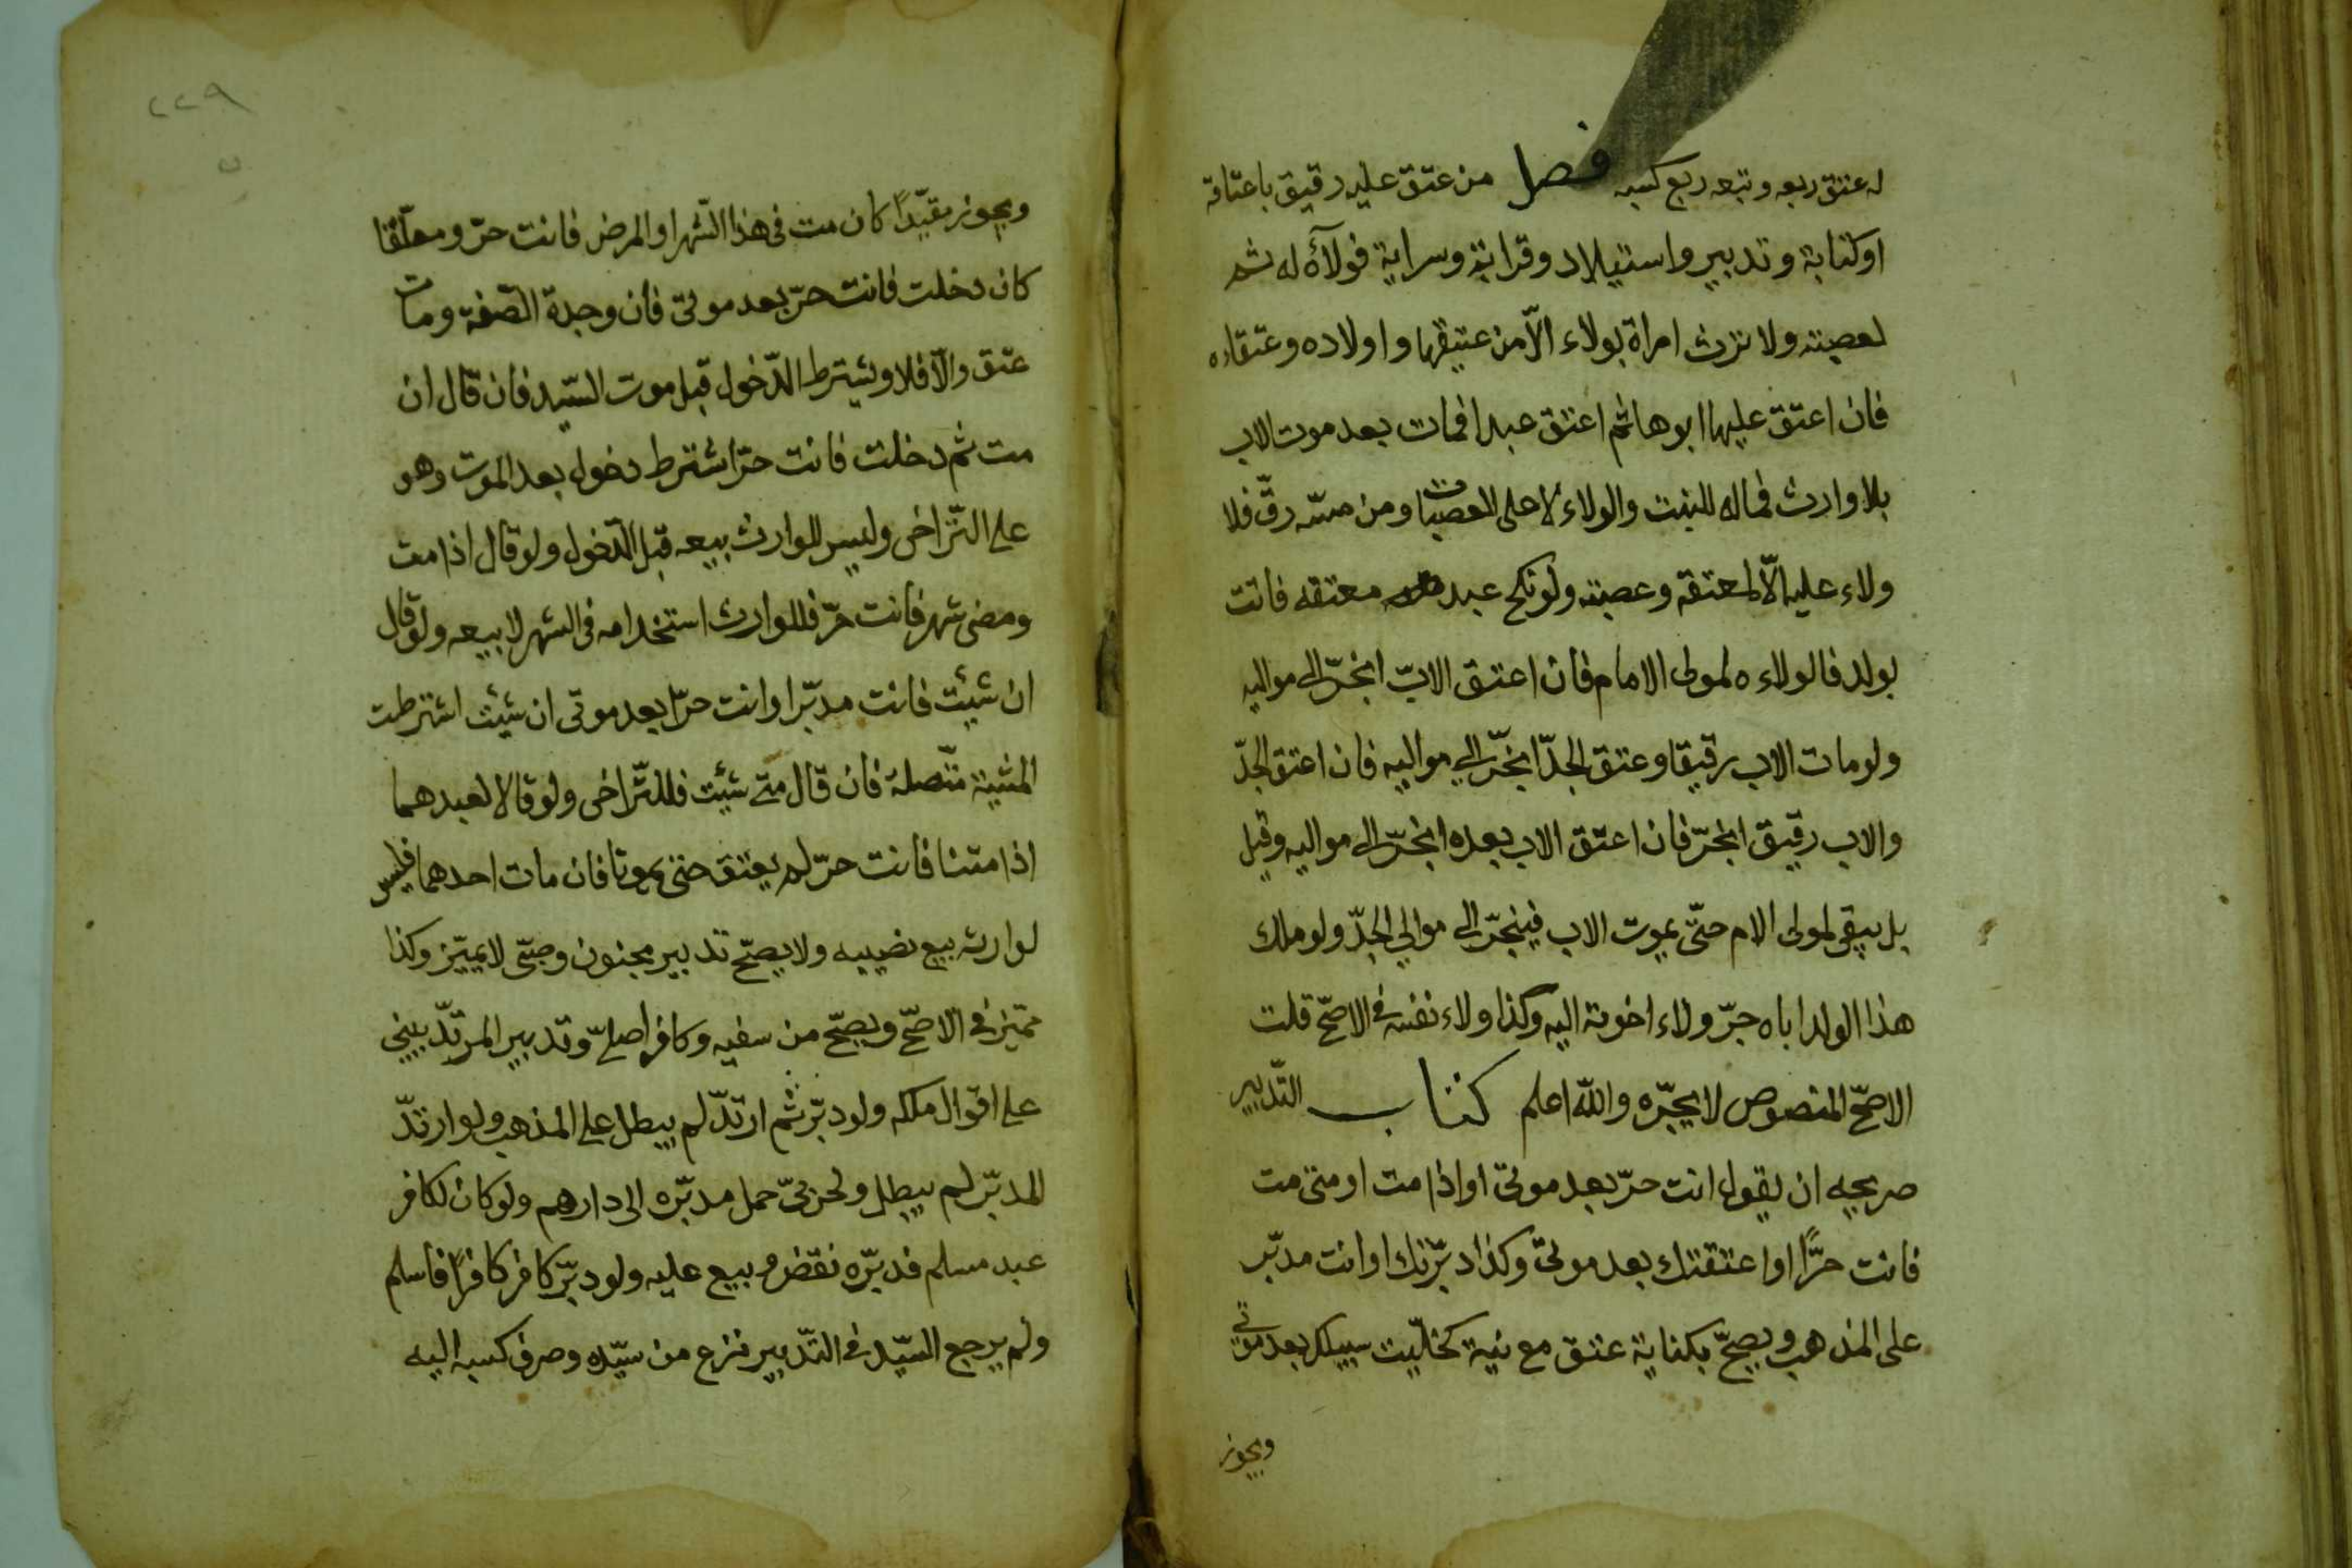 له عتق ربعه وتبعه ربع كسبه فصل من عتق عليه رقيق باعتاقه
او كتابة وتدبير واستيلاد وقرابة وسراية فولآؤه له ثم
لعصبته ولا ترث امراة بولاء الّا من عتيقها واولاده وعتقاءه
فان اعتق عليها ابوها ثم اعتق عبدا فمات بعد موت الاب
بلا وارث فماله للبنت والولاء لاعلى العصبات ومن مسّه رقّ فلا
ولاء عليه الّا لمعتقه وعصبته ولو نكح عبد معتقه فاتت
بولد فالولاء لمولى الامام فان اعتق الابّ انجرّ الى مواليه
ولو مات الاب رقيقا وعتق الجدّ انجرّ الي مواليه فان اعتق الجدّ
والاب رقيق انجرّ فان اعتق الاب بعده انجرّ الى مواليه وقيل
بل يبقى لمولى الام حتّى يموت الاب فينجرّ الى موالي الجدّ ولو ملك
هذا الولد اباه جرّ ولاء اخوته اليه وكذا ولاء نفسه في الاصحّ قلت
الاصحّ المنصوص لا يجرّه واللّه اعلم كتاب التّدبير
صريحه ان يقول انت حرّ بعد موتى او اذا مت او متى مت
فانت حرًّا او اعتقتك بعد موتى وكذا دبّرتك او انت مدبّر
على المذهب ويصحّ بكناية عتق مع نية كخلّيت سبيلك بعد موتى
ويجوز
٢٢٩
ويجوز مقيّدًا كان مت فى هذا الشّهر او المرض فانت حرّ ومعلّقا
كان دخلت فانت حرّ بعد موتى فان وجدة الصّفة ومات
عتق والّا فلا ويشترط الدّخول قبل موت السّيد فان قال ان
مت ثم دخلت فانت حرّ اشترط دخول بعد الموت وهو
على التّراخى وليس للوارث بيعه قبل الدّخول ولو قال اذا مت
ومضى شهر فانت حرّ فللوارث استخدامه فى الشهر لا بيعه ولو قال
ان شيئت فانت مدبّرا او انت حرّ بعد موتى ان شيئت اشترطت
المشية متّصلة فان قال متى شيئت فللتّراخى ولو قالا لعبدهما
اذا متنا فانت حرّ لم يعتق حتى يموتا فان مات احدهما فليس
لوارثه بيع نصيبه ولا يصحّ تدبير مجنون وصبّى لا يميّز وكذا
مميّز في الاصحّ ويصحّ من سفيه وكافر اصلىّ وتدبير المرتدّ يبنى
على اقوال ملكه ولو دبّر ثم ارتدّ لم يبطل على المذهب ولو ارتدّ
المدبّر لم يبطل ولحربىّ حمل مدبّره الى دارهم ولو كان لكافر
عبد مسلم فدبّره نقض وبيع عليه ولو دبّر كافر كافرًا فاسلم
ولم يرجع السّيّد في التّدبير نزع من سيّده وصرف كسبه اليه